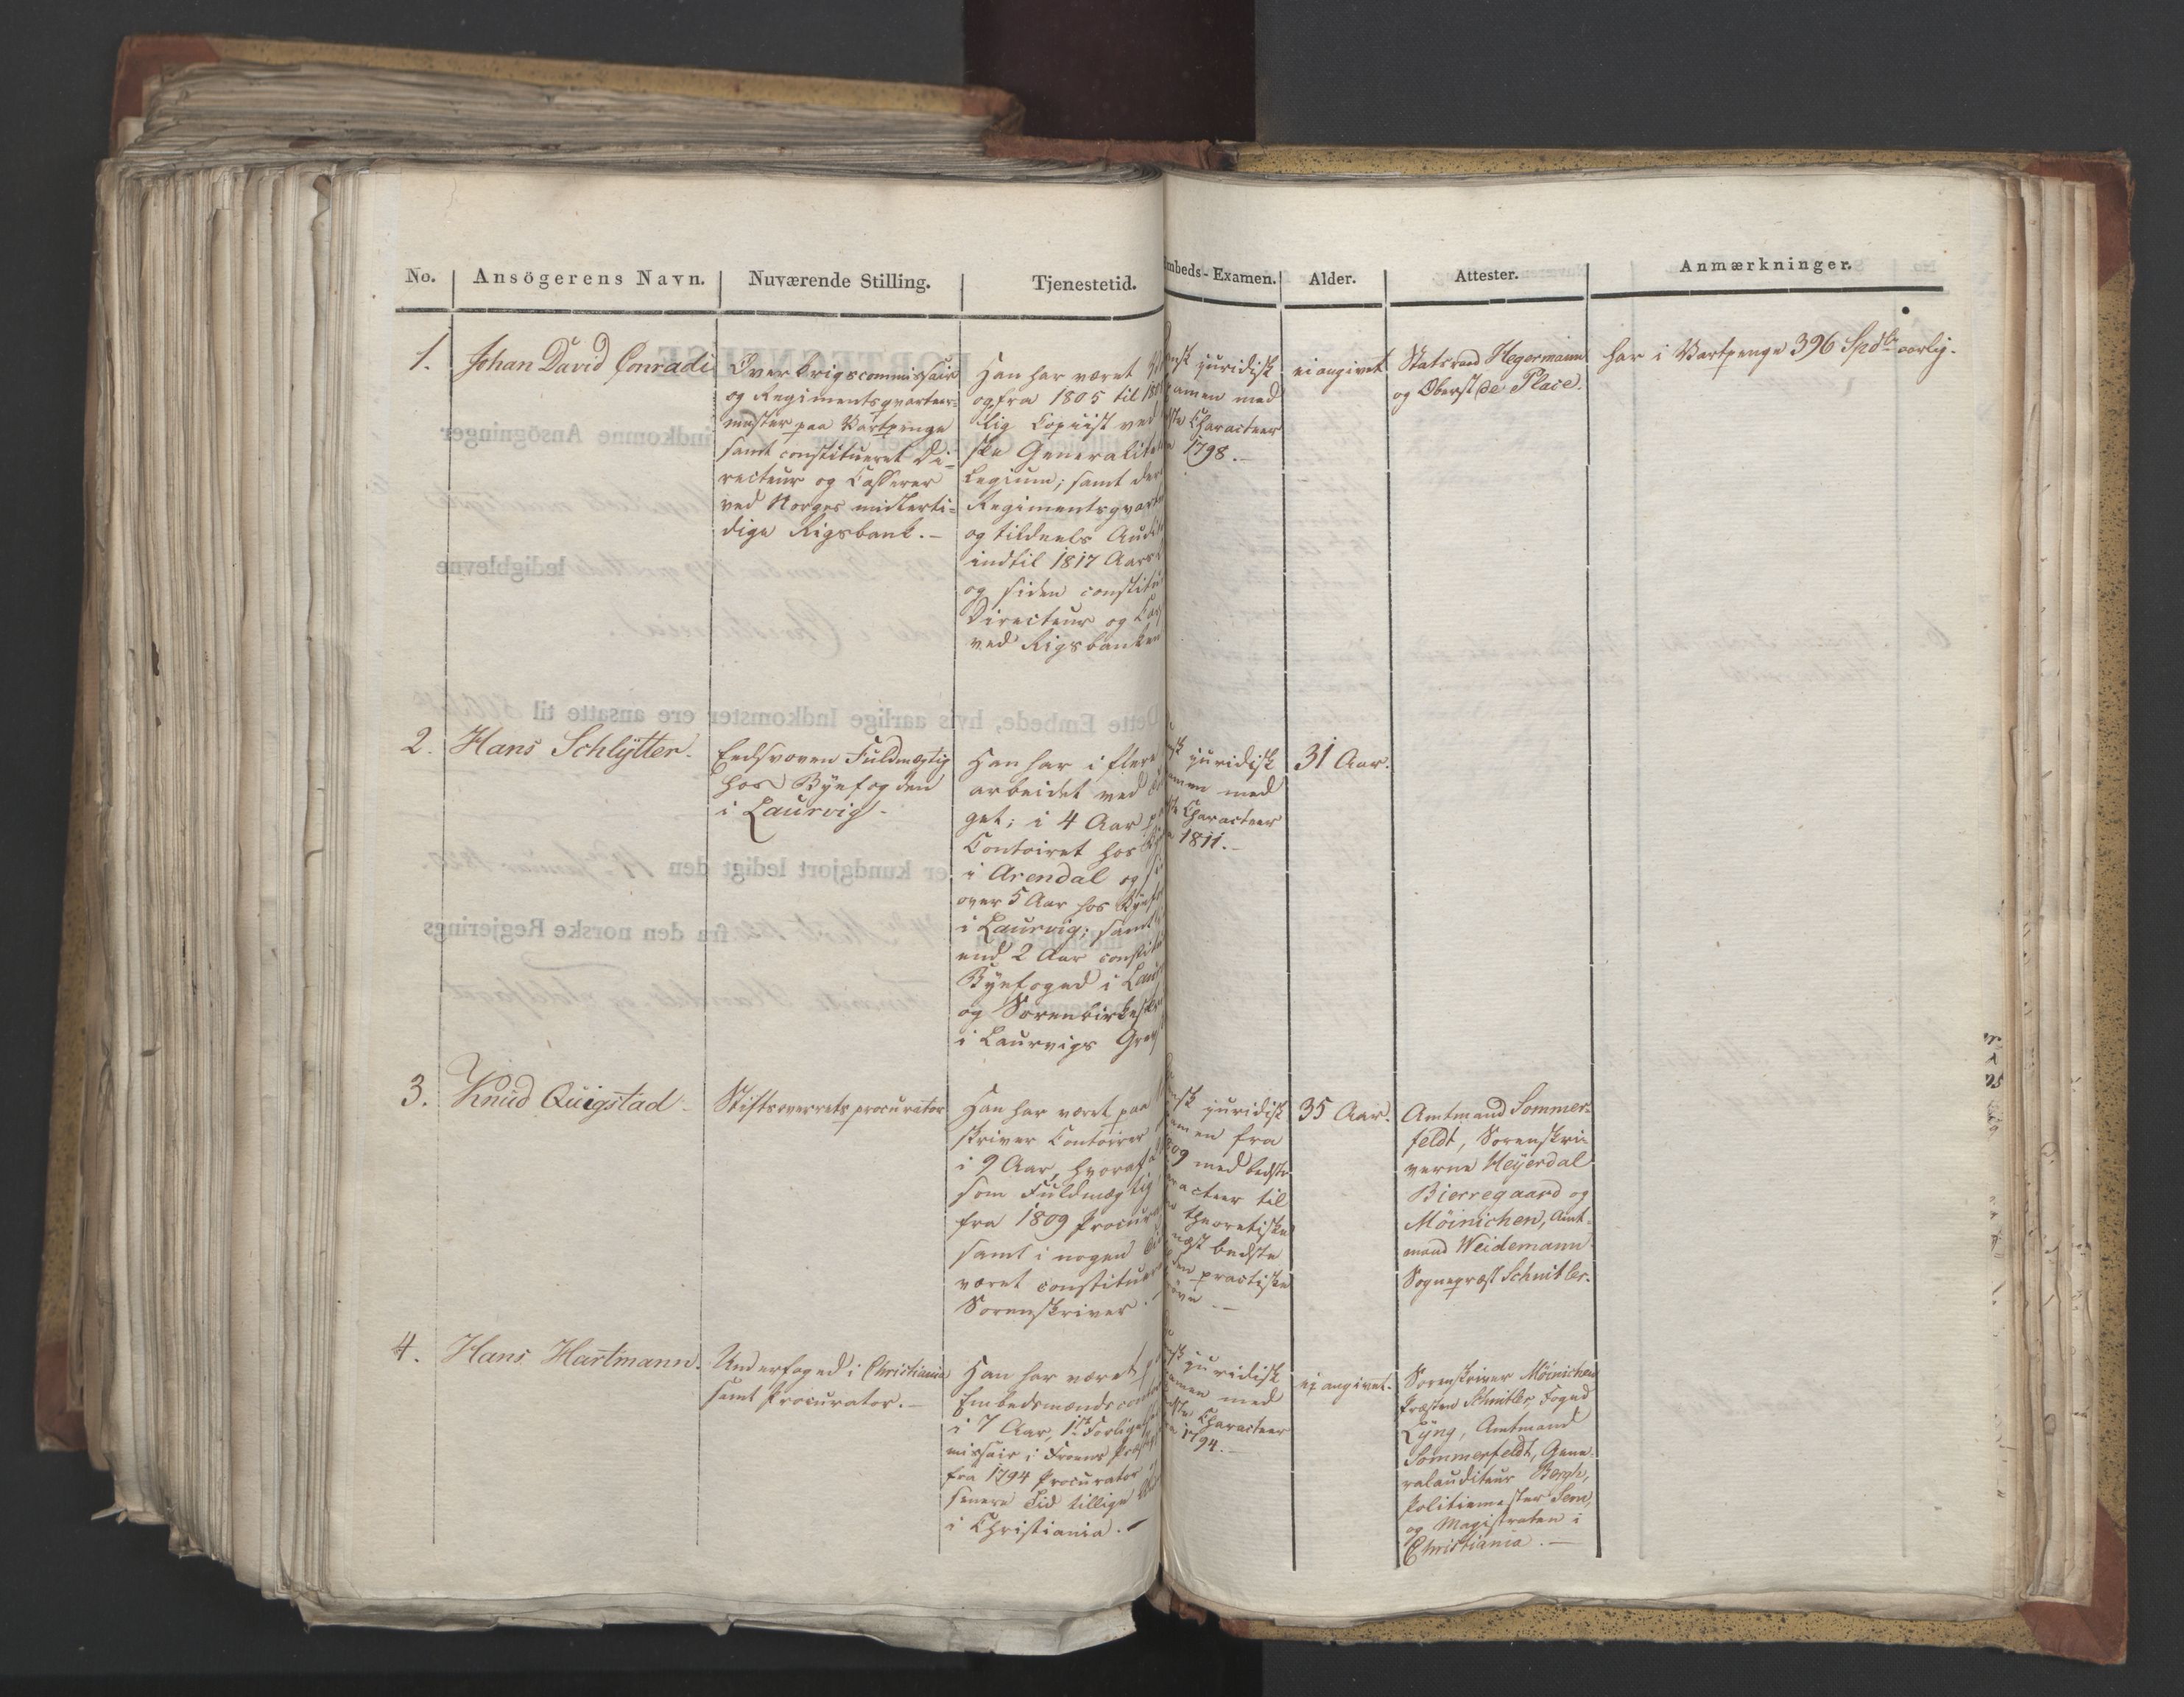 No. Ansögerens Navn. Nuværende Stilling. Tjenestetid. mbeds-Examen. Alder. Attester. Anmærkninger.
1. Johan David Conradi
Overkrigscommissair
og Regimentsqvarteer-
mester paa Vartpenge
samt constitueret Di-
recteur og Casserer
ved Norges midlerti-
dige Rigsbank.-
Han har været
og fra 1805 til
lig Copiist ved
ske Generalitet
Legium; samt der
Regimentsqvart
og tildeels Audit
indtil 1817 Aars
og siden constitu
Directeur og Cas
ved Rigsbanken
nsk juridisk
xamen med
ste Characteer
1798.-
ei angivet
Statsraad Hegermann
og Oberst de Place.
har i Vartpenge 396 Spdlr aarlig.
2. Hans Schlytter.
Eedsvoren Fuldmægtig
hos Byefogden
i Laurvig-
Han har i flere
arbeidet ved
get; i 4 Aar
Contoiret hos
i Arendal og
over 5 Aar hos Byef
i Laurvig; samt
end 2 Aar constitu
Byefoged i Laur
og Sorenbirkeskr
i Laurvigs Grev
nsk juridisk
amen med
ste Characteer
1811.-
31 Aar.
3. Knud Quigstad-
Stiftsoverretsprocurator
Han har været paa
skriver Contoirer
i 9 Aar, hvoraf
som Fuldmægtig
fra 1809 Procura
samt i nogen
været constituer
Sorenskriver.-
nsk juridisk
amen fra
809 med bedste
racteer til
theoretiske
næst bedste
den practiske
röve.-
35 Aar.
Amtmand Sommer-
feldt, Sorenskri-
verne Heyerdal
Bierregaard og
Möinichen, Amt-
mand Weidemann
Sognepræst Schnitler.
4. Hans Hartmann.
Underfoged i Christiania
samt Procurator.-
Han har været
Embedsmænds con
i 7 Aar, 1ste Forligel
missair i Froens Præst
fra 1794 Procurator
senere Tid tillige
i Christiania.-
nsk juridisk
amen med
dste Characteer
1794.-
ei angivet.
Sorenskriver Möinichen
Præsten Schnitler, Foged
Lyng, Amtmand
Sommerfeldt, Gene-
ralauditeur Bergh,
Politiemester Sem,
og Magistraten i
Christiania.-